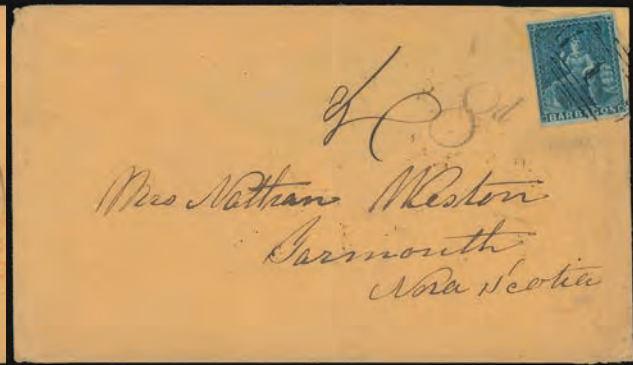 BARBADOS
8d
Mrs Nathan Weston
Yarmouth
Nova Scotia